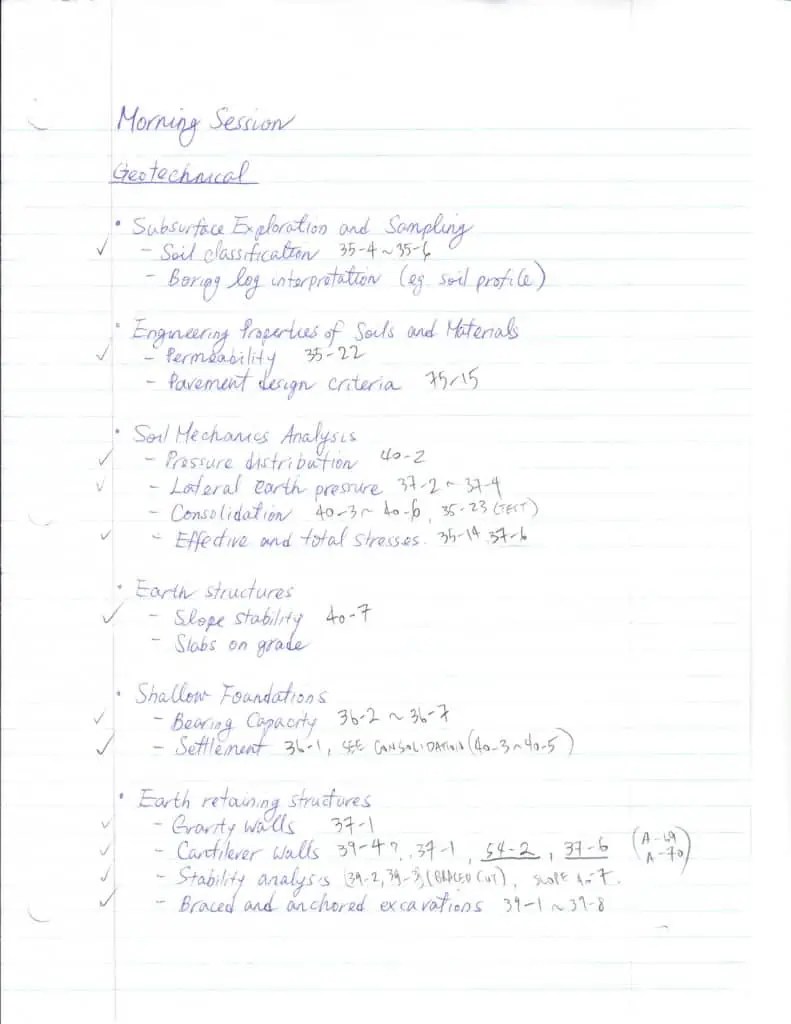 Morning Session
Geotechnical
• Subsurface Exploration and Sampling
✓ - Soil classification 35-4 ~ 35-6
- Boring log interpretation (eg. soil profile)
• Engineering Properties of Soils and Materials
✓ - Permeability 35-22
- Pavement design criteria 75-15
• Soil Mechanics Analysis
✓ - Pressure distribution 40-2
✓ - Lateral earth pressure 37-2 ~ 37-4
- Consolidation 40-3 ~ 40-6, 35-23 (TEST)
✓ - Effective and total stresses. 35-14, 37-6
• Earth structures
✓ - Slope stability 40-7
- Slabs on grade
• Shallow Foundations
✓ - Bearing Capacity 36-2 ~ 36-7
✓ - Settlement 36-1, SEE CONSOLIDATION (40-3 ~ 40-5)
• Earth retaining structures
✓ - Gravity walls 37-1
✓ - Cantilever walls 39-4?, 37-1, 54-2, 37-6 (A-69 A-70)
✓ - Stability analysis (39-2, 39-3, (BRACED CUT), SLOPE 40-7.
✓ - Braced and anchored excavations 39-1 ~ 39-8